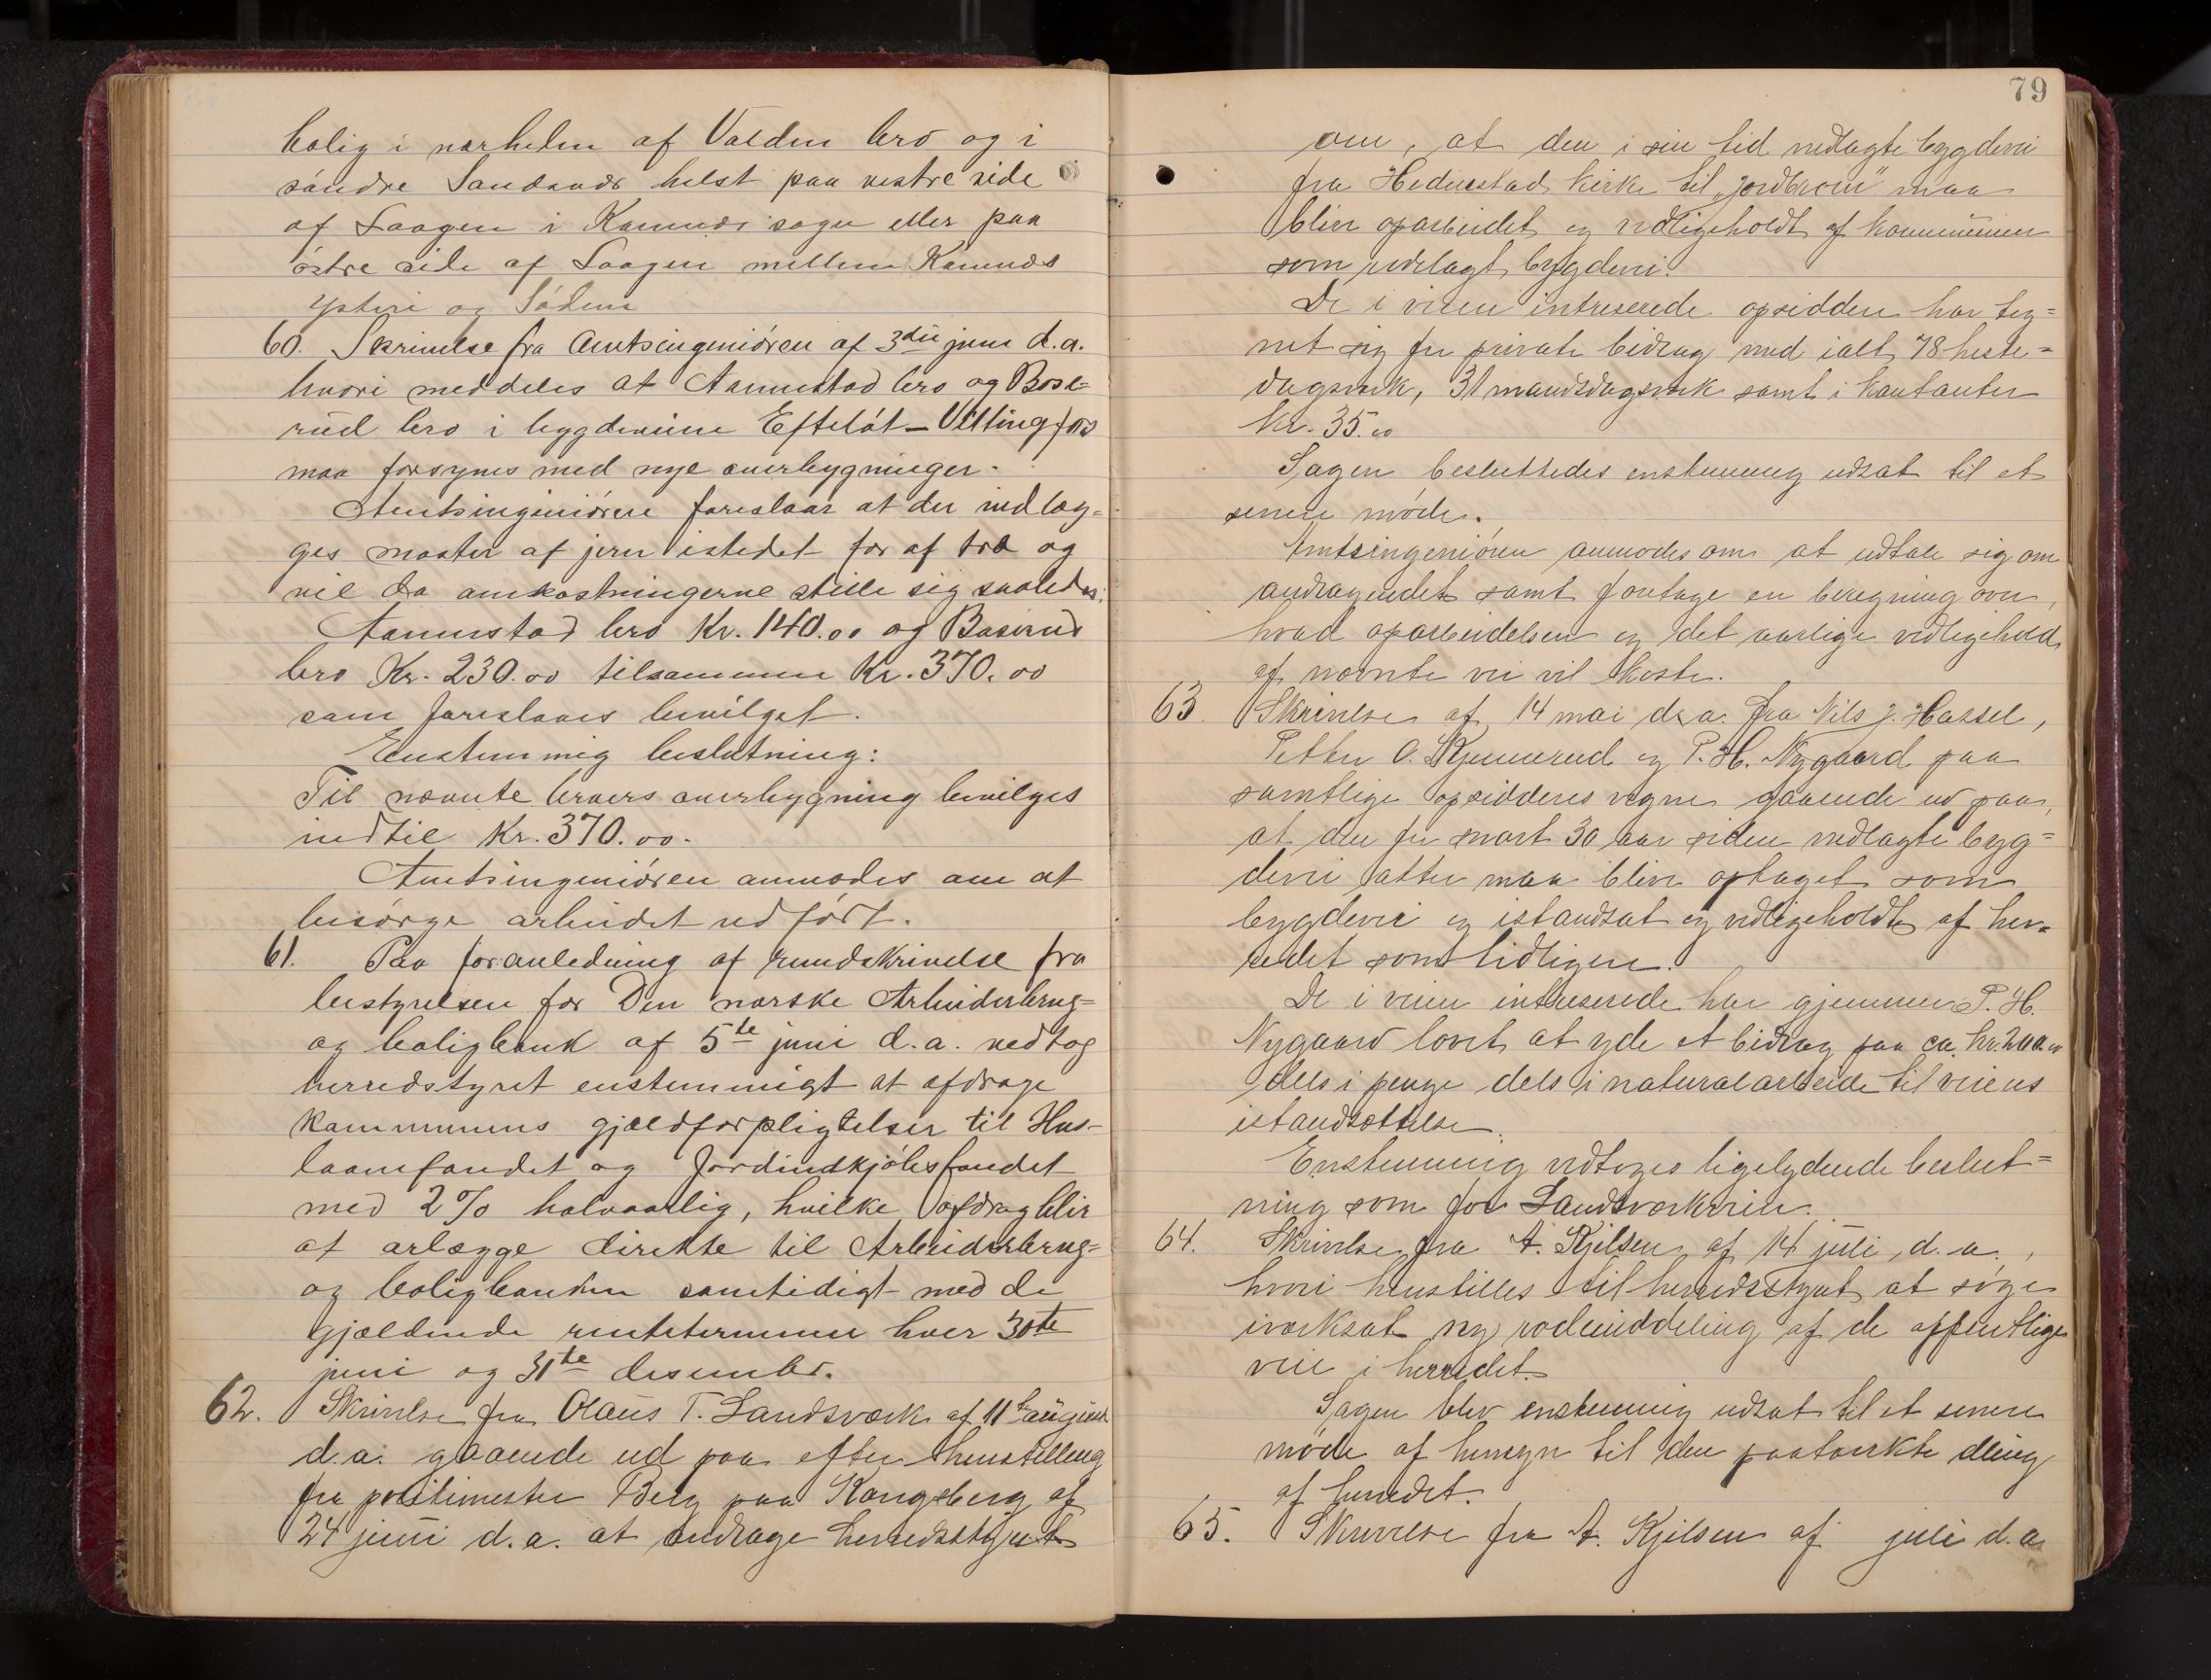 bolig i nærheden af Valden bro og i
søndre Sandsvær helst paa vestre side
af Laagen i Komnæs sogn eller paa
østre side af Laagen mellem Komnæs
Ysteri og
60. Skrivelse fra Amtsingeniøren af 3die juni d.a.
hvori meddeles at Aannestad bro og Bose-
rud bro i bygdeveiene Efteløt - Vittingfos
maa forsynes med nye overbygninger.
Amtsingeniøren foreslaar at der indlæg=
ges master af jern istedet for af træ og
vil da omkostningerne stille sig saaledes:
Aannestad bro Kr. 140.00 og Baserud
bro Kr. 230.00 tilsammen Kr. 370.00
som foreslaaes bevilget.
Enstemmig beslutning:
Til nævnte broers overbygning bevilges
indtil Kr. 370.00.
Amtsingeniøren anmodes om at
besørge arbeidet udført.
61. Paa foranledning af rundskrivelse fra
bestyrelsen for Den norske Arbeiderbrug=
og boligbank af 5te juni d.a. vedtog
herredstyret enstemmigt at afdrage
kommunens gjældforpligtelser til Hus-
laanefondet og Jordindkjøbsfondet
med 2 % halvaarlig, hvilke afdrag blir
at erlægge direkte til Arbeiderbrug=
og boligbanken samtidigt med de
gjældende renteterminer hver 30te
juni og 31te desember.
62. Skrivelse fra Olaus T. Landsverk af 11te august
d.a. gaaende ud paa efter henstilling
fra politimester Berg paa Kongsberg af
24 juni d.a. at andrage herredsstyret
79
om, at den i sin tid nedlagte bygdevei
fra Hedenstad kirke til "Jordbroen" maa
blive oparbeidet og vedligeholdt af kommunen
som nedlagt bygdevei.
De i veien intreserede opsiddere har teg=
net sig for private bidrag med ialt 78 heste=
dagsverk, 31 mandsdagsverk samt i kontanter
kr. 35.00
Sagen besluttedes enstemmig udsat til et
senere møde.
Amtsingeniøren anmodes om at udtale sig om
andragendet samt foretage en beregning over,
hvad oparbeidelsen og det aarlige vedligehold
af nævnte vei vil koste.
63. Skrivelse af 14 mai d.a. fra Nils J. Hassel,
Petter O. Kjennerud og P. H. Nygaard paa
samtlige opsidderes vegne gaaende ud paa,
at den for snart 30 aar siden nedlagte byg=
devei atter maa blive optaget som
bygdevei og istandsat og vedligeholdt af her=
redet som tidligere.
De i veien intreserede har gjennem P. H.
Nygaard lovet at yde et bidrag paa ca. kr. 200.00
dels i penge dels i naturalarbeide til veiens
istandsættelse.
Enstemmig vedtoges ligelydende beslut=
ning som for Landsverkveien.
64. Skrivelse fra A. Kjelsen af 14 juli d.a.,
hvori henstilles til herredsstyret at søge
iverksat ny rodeinddeling af de offentlige
veie i herredet.
Sagen blev enstemmig udsat til et senere
møde af hensyn til den paatænkte deling
af herredet.
65. Skrivelse fra A. Kjelsen af juli d.a.